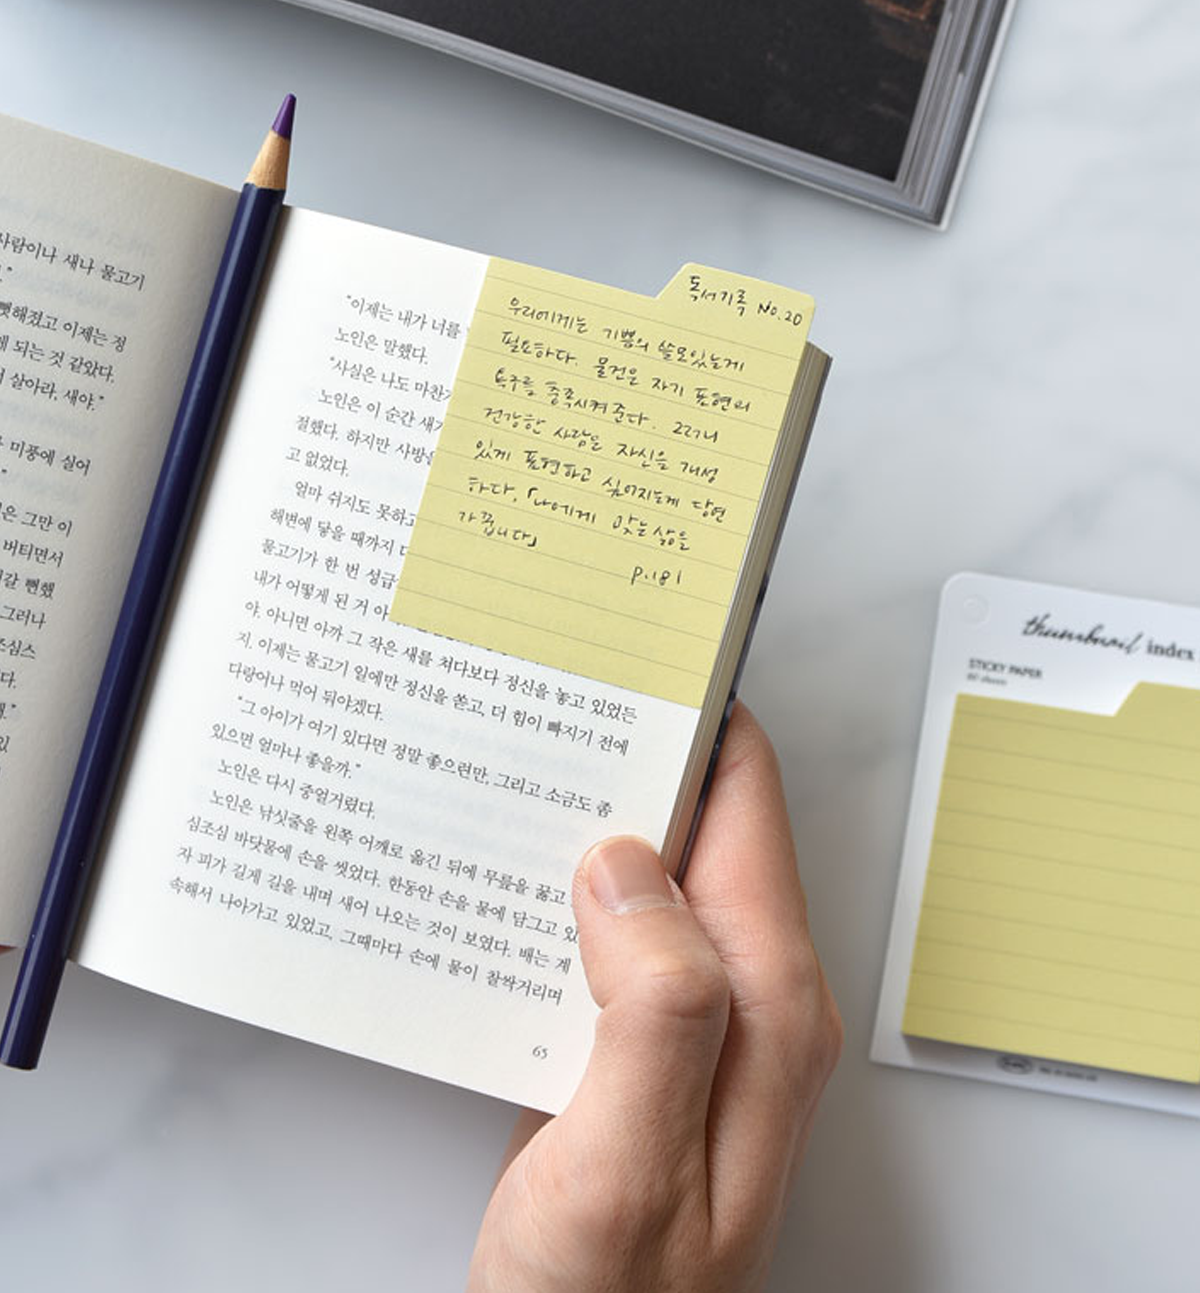 사람이나 새나 물고기
"
뻣해졌고 이제는 정
에 되는 것 같았다.
서 살아라, 새야."
미풍에 실어
"
은 그만 이
버티면서
갈 뻔했
그러나
조심스
다.
"
있
"이제는 내가 너를
노인은 말했다.
"사실은 나도 마찬가
노인은 이 순간 새가
절했다. 하지만 사방을
고 없었다.
얼마 쉬지도 못하고
해변에 닿을 때까지
물고기가 한 번 성급
내가 어떻게 된 거 아
야. 아니면 아까 그 작은 새를 쳐다보다 정신을 놓고 있었든
지. 이제는 물고기 일에만 정신을 쏟고, 더 힘이 빠지기 전에
다랑어나 먹어 둬야겠다.
"그 아이가 여기 있다면 정말 좋으련만, 그리고 소금도 좀
있으면 얼마나 좋을까."
노인은 다시 중얼거렸다.
노인은 낚싯줄을 왼쪽 어깨로 옮긴 뒤에 무릎을 꿇고
심조심 바닷물에 손을 씻었다. 한동안 손을 물에 담그고 있
자 피가 길게 길을 내며 새어 나오는 것이 보였다. 배는 계
속해서 나아가고 있었고, 그때마다 손에 물이 찰싹거리며
65
독서기록 No.20
우리에게는 기쁨의 쓸모있는게
필요하다. 물건은 자기 표현의
욕구를 충족시켜준다. 그러니
건강한 사람은 자신을 개성
있게 표현하고 싶어지는게 당연
하다. 「나에게 맞는 삶을
가꿉니다」
p.181
thumbnail index
STICKY PAPER
80 sheets